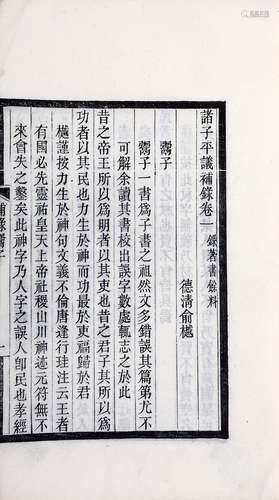 諸子平議補錄卷一　錄著書餘料
德清俞樾
鬻子
鬻子一書為子書之祖然文多錯誤其篇第尤不
可解余讀其書校出誤字數處輒志之於此
昔之帝王所以為明者以其吏也昔之君子其所以為
功者以其民也力生於神而功最於吏福歸於君
樾謹按力生於神句文義不倫唐逢行珪注云王者
有國必先靈祐皇天上帝社稷山川神迹元符無不
來會失之鑿矣此神字乃人字之誤人卽民也孝經
補錄鬻子
一